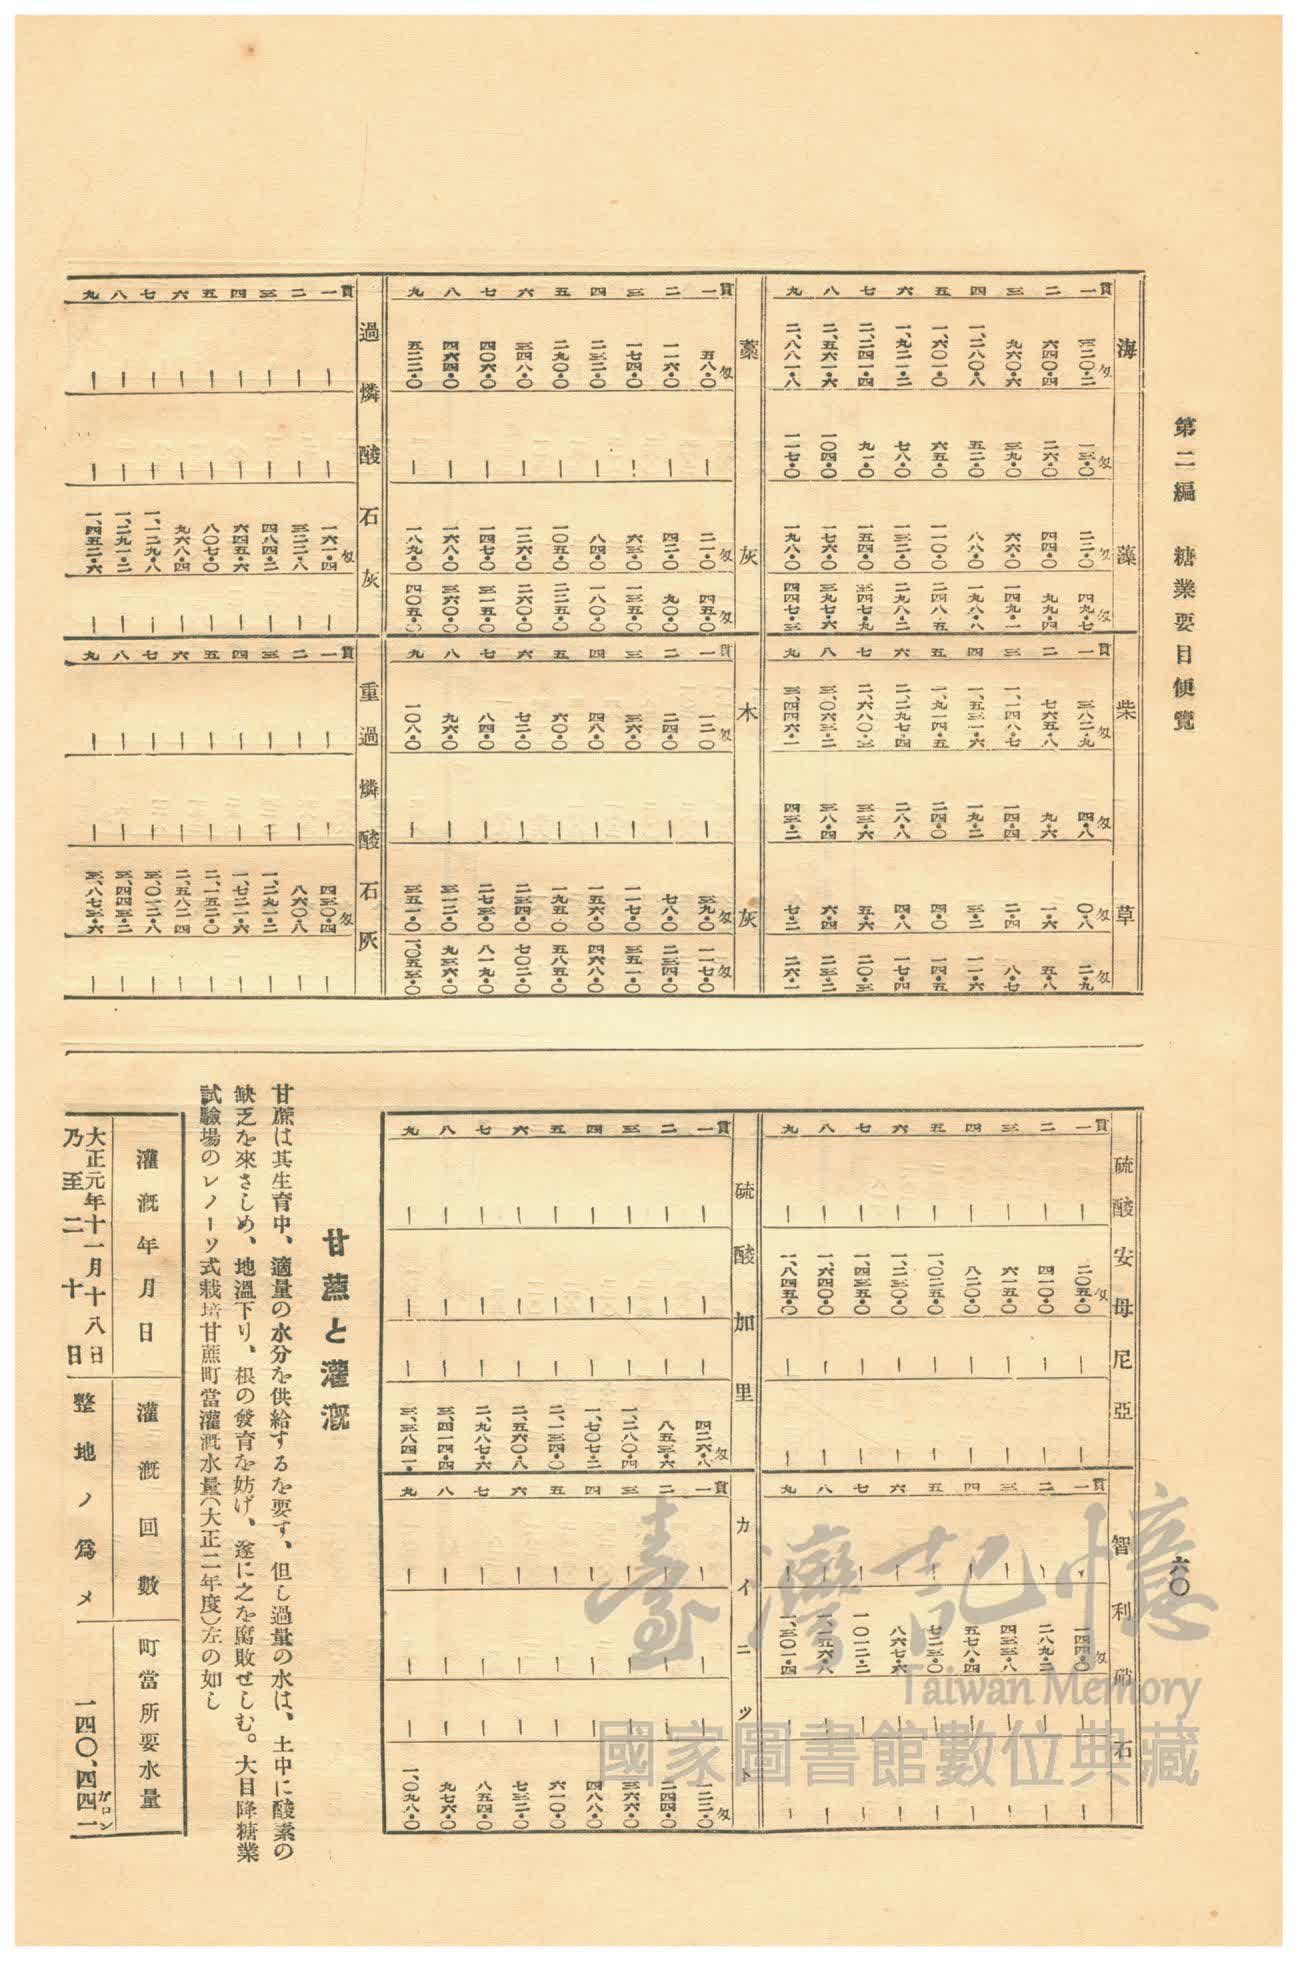 第二編　糖業要目便覽
六〇
海藻
一貫　三二〇・二匁　一三・〇匁　二二・〇匁　四九・七匁
二　六四〇・四　二六・〇　四四・〇　九九・四
三　九六〇・六　三九・〇　六六・〇　一四九・一
四　一、二八〇・八　五二・〇　八八・〇　一九八・八
五　一、六〇一・〇　六五・〇　一一〇・〇　二四八・五
六　一、九二一・二　七八・〇　一三二・〇　二九八・二
七　二、二四一・四　九一・〇　一五四・〇　三四七・九
八　二、五六一・六　一〇四・〇　一七六・〇　三九七・六
九　二、八八一・八　一一七・〇　一九八・〇　四四七・三
柴草
一貫　三八二・九匁　四・八匁　〇・八匁　二・九匁
二　七六五・八　九・六　一・六　五・八
三　一、一四八・七　一四・四　二・四　八・七
四　一、五三一・六　一九・二　三・二　一一・六
五　一、九一四・五　二四・〇　四・〇　一四・五
六　二、二九七・四　二八・八　四・八　一七・四
七　二、六八〇・三　三三・六　五・六　二〇・三
八　三、〇六三・二　三八・四　六・四　二三・二
九　三、四四六・一　四三・二　七・二　二六・一
藁灰
一貫　五八・〇匁　｜　二一・〇匁　四五・〇匁
二　一一六・〇　｜　四二・〇　九〇・〇
三　一七四・〇　｜　六三・〇　一三五・〇
四　二三二・〇　｜　八四・〇　一八〇・〇
五　二九〇・〇　｜　一〇五・〇　二二五・〇
六　三四八・〇　｜　一二六・〇　二六〇・〇
七　四〇六・〇　｜　一四七・〇　三一五・〇
八　四六四・〇　｜　一六八・〇　三六〇・〇
九　五二二・〇　｜　一八九・〇　四〇五・〇
木灰
一貫　一二・〇匁　｜　三九・〇匁　一一七・〇匁
二　二四・〇　｜　七八・〇　二三四・〇
三　三六・〇　｜　一一七・〇　三五一・〇
四　四八・〇　｜　一五六・〇　四六八・〇
五　六〇・〇　｜　一九五・〇　五八五・〇
六　七二・〇　｜　二三四・〇　七〇二・〇
七　八四・〇　｜　二七三・〇　八一九・〇
八　九六・〇　｜　三一二・〇　九三六・〇
九　一〇八・〇　｜　三五一・〇　一、〇五三・〇
過燐酸石灰
一貫　｜　｜　一六一・四匁　｜
二　｜　｜　三二二・八　｜
三　｜　｜　四八四・二　｜
四　｜　｜　六四五・六　｜
五　｜　｜　八〇七・〇　｜
六　｜　｜　九六八・四　｜
七　｜　｜　一、一二九・八　｜
八　｜　｜　一、二九一・二　｜
九　｜　｜　一、四五二・六　｜
重過燐酸石灰
一貫　｜　｜　四三〇・四匁　｜
二　｜　｜　八六〇・八　｜
三　｜　｜　一、二九一・二　｜
四　｜　｜　一、七二一・六　｜
五　｜　｜　二、一五二・〇　｜
六　｜　｜　二、五八二・四　｜
七　｜　｜　三、〇一二・八　｜
八　｜　｜　三、四四三・二　｜
九　｜　｜　三、八七三・六　｜
硫酸安母尼亞
一貫　｜　二〇五・〇匁　｜　｜
二　｜　四一〇・〇　｜　｜
三　｜　六一五・〇　｜　｜
四　｜　八二〇・〇　｜　｜
五　｜　一、〇二五・〇　｜　｜
六　｜　一、二三〇・〇　｜　｜
七　｜　一、四三五・〇　｜　｜
八　｜　一、六四〇・〇　｜　｜
九　｜　一、八四五・〇　｜　｜
智利硝石
一貫　｜　一四四・〇匁　｜　｜
二　｜　二八九・二　｜　｜
三　｜　四三三・八　｜　｜
四　｜　五七八・四　｜　｜
五　｜　七二三・〇　｜　｜
六　｜　八六七・六　｜　｜
七　｜　一〇一二・二　｜　｜
八　｜　一、一五六・八　｜　｜
九　｜　一、三〇一・四　｜　｜
硫酸加里
一貫　｜　｜　｜　四二六・八匁
二　｜　｜　｜　八五三・六
三　｜　｜　｜　一、二八〇・四
四　｜　｜　｜　一、七〇七・二
五　｜　｜　｜　二、一三四・〇
六　｜　｜　｜　二、五六〇・八
七　｜　｜　｜　二、九八七・六
八　｜　｜　｜　三、四一四・四
九　｜　｜　｜　三、三八四一・
カイニツト
一貫　｜　｜　｜　一二二・〇匁
二　｜　｜　｜　二四四・〇
三　｜　｜　｜　三六六・〇
四　｜　｜　｜　四八八・〇
五　｜　｜　｜　六一〇・〇
六　｜　｜　｜　七三二・〇
七　｜　｜　｜　八五四・〇
八　｜　｜　｜　九七六・〇
九　｜　｜　｜　一、〇九八・〇
甘蔗と灌漑
甘蔗は其生育中、適量の水分を供給するを要す、但し過量の水は、土中に酸素の
缺乏を來さしめ、地溫下り、根の發育を妨げ、遂に之を腐敗せしむ。大目降糖業
試驗場のレノーソ式栽培甘蔗町當灌漑水量（大正二年度）左の如し
灌漑年月日　灌漑回數　町當所要水量
大正元年十一月十八日乃至二十日　整地ノ爲メ　一四〇、四四一ガロン
臺灣記憶
Taiwan Memory
國家圖書館數位典藏